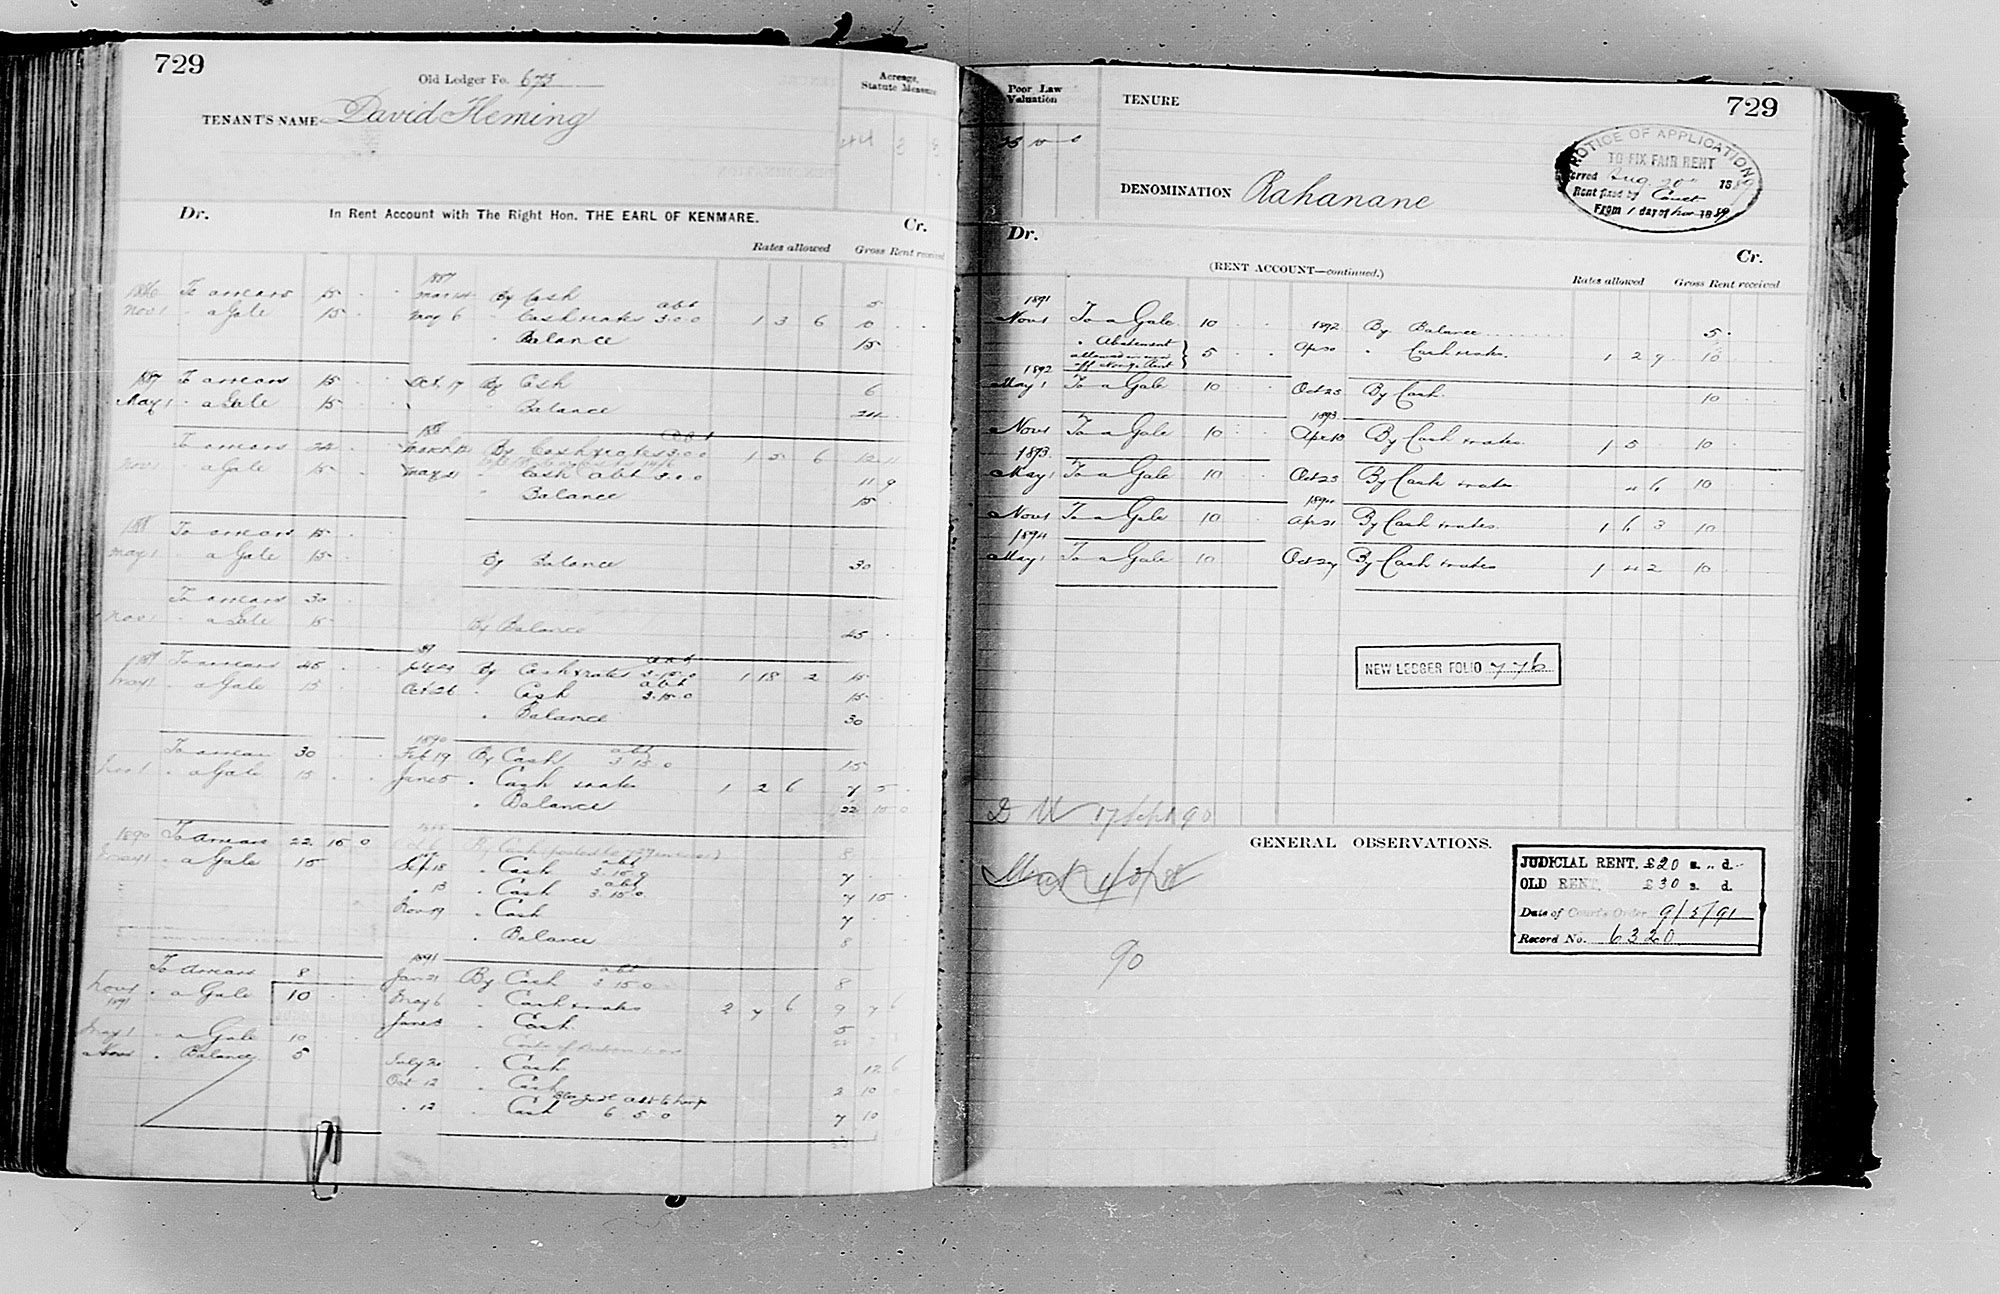 729
Old Ledger Fo. 675
Acreage, Statute Measure
TENANT'S NAME David Fleming
Dr. In Rent Account with The Right Hon. THE EARL OF KENMARE. Cr.
Rates allowed Gross Rent received
1887
1886 To arrears 15 Mar 14 By Cash 5
Nov 1 " a Gale 15 May 6 " Cash & rates abt 3.0.0 1 3 6 10
" Balance 15
1887 To arrears 15 Oct. 17 By Cash 6
May 1 " a Gale 15 " Balance 24
1888
To arrears 24 March By Cash & rates 3.0.0 1 5 6 12 11
Nov 1 " a Gale 15 May " Cash abt 3.0.0 11 9
" Balance 15
1888 To arrears 15
May 1 " a Gale 15 By Balance 30
To arrears 30
Nov 1 " a Gale 15 By Balance 45
89
1889 To arrears 45 By Cash & rates abt 3.15.0 1 18 2 15
May 1 " a Gale 15 Oct 26 " Cash abt 3.15.0 15
" Balance 30
1890
To arrears 30 Feb 19 By Cash abt 3 15 0 15
Nov 1 " a Gale 15 June 5 " Cash & rates 1 2 6 7 5
" Balance 22 15 0
1890 To arrears 22 15 0 By Cash 8
May 1 " a Gale 15 Sep 18 " Cash abt 3.15.0 7
" 13 " Cash abt 3.15.0 7 15
Nov 19 " Cash 7
" Balance 8
1891
To arrears 8 Jan 21 By Cash abt 3 15 0 8
Nov 1 " a Gale 10 May 6 " Cash & rates 2 7 6 9 7 6
1891 June 8 " Cash 5
May 1 " a Gale 10
Nov 1 " Balance 5 July 20 " Cash 12 6
Oct 12 " Cash 2 10 0
" 12 " Cash 6 5 0 7 10
Poor Law Valuation
TENURE
729
NOTICE OF APPLICATION
TO FIX FAIR RENT
Served Aug. 20th 1889
Rent fixed by Court
From 1 day of Nov 1889
DENOMINATION Rahanane
Dr. Cr.
(RENT ACCOUNT—continued.)
Rates allowed Gross Rent received
1891
Nov 1 To a Gale 10 1892 By Balance 5
" Abatement allowed 5 Ap 30 " Cash & rates. 1 2 9 10
1892
May 1 To a Gale 10 Oct 25 By Cash 10
1893
Nov 1 To a Gale 10 Apr 10 By Cash & rates. 1 5 10
1893
May 1 To a Gale 10 Oct 23 By Cash & rates 4 6 10
1894
Nov 1 To a Gale 10 Apr 21 By Cash & rates. 1 6 3 10
1894
May 1 To a Gale 10 Oct 27 By Cash & rates 1 4 2 10
NEW LEDGER FOLIO 776
17 Sept 90
GENERAL OBSERVATIONS.
90
JUDICIAL RENT. £20 s. d.
OLD RENT. £30 s. d.
Date of Court's Order 9/5/91
Record No. 6320